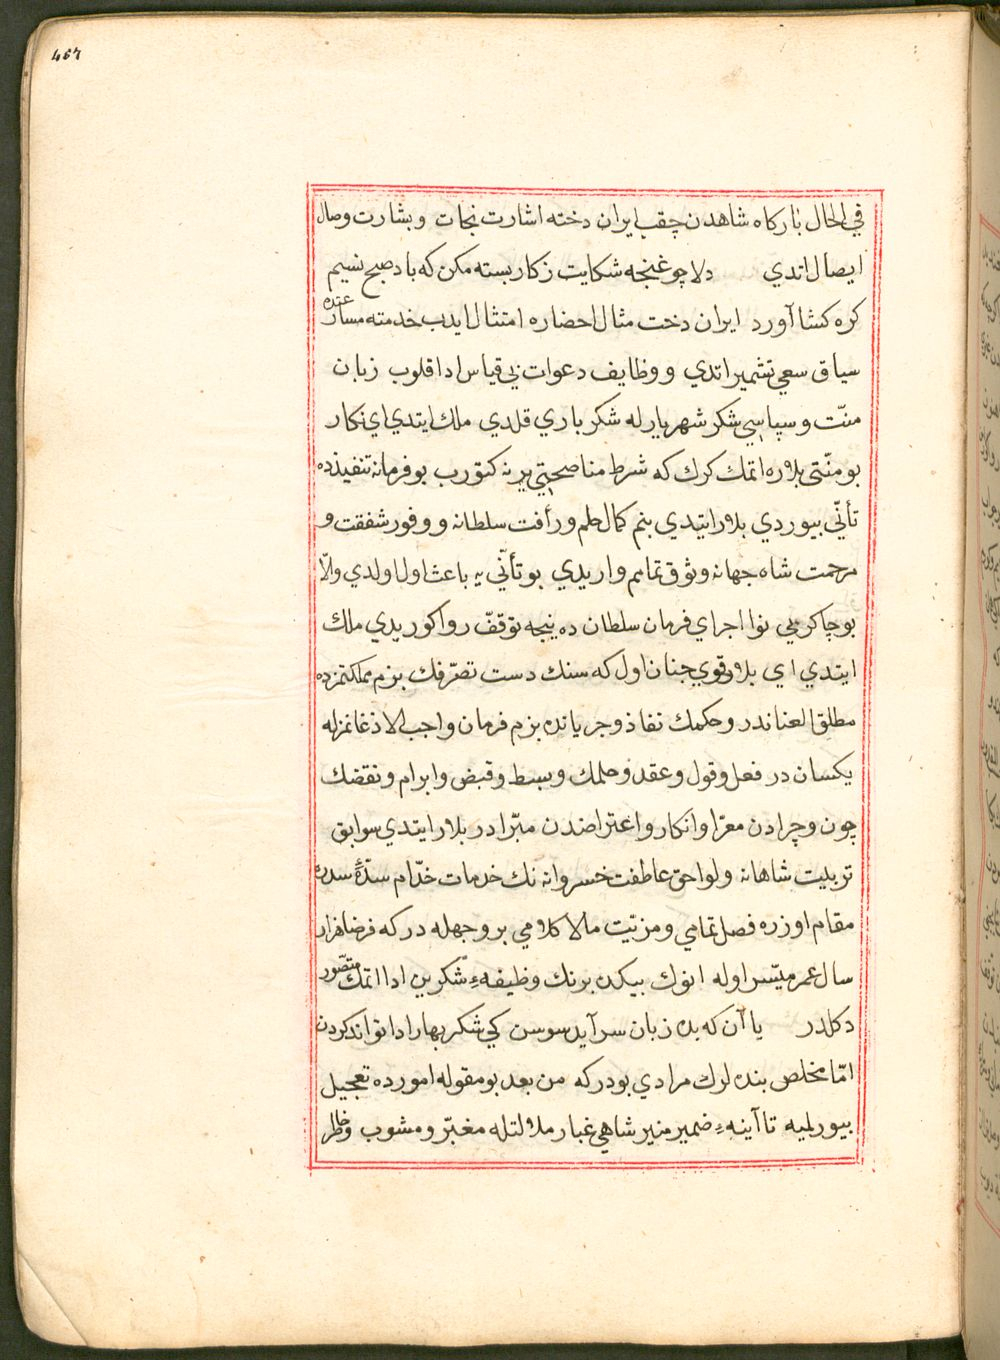 467
في الحال بارکاه شاهدن چقب ایران دخته اشارت نجات و بشارت وصال
ایصال اتدي دلا چو غنچه شکایت زکار بسته مکن که باد صبح نسیم
کره کشا آورد ایران دخت مثال احضاره امتثال ایدب خدمته مسارعته
سیاق سعي تشمیر اتدي و وظایف دعوات بي قیاس ادا قلوب زبان
منّت و سپاسي شکر شهریارله شکر باري قلدي ملك ایتدي اي نکار
بو منّتی بلاره اتمك کرك که شرط مناصحتي یرنه کتورب بو فرمانه تنفیذده
تأنّي بیوردي بلار ایتدي بنم کمال حلم و رأفت سلطانه و وفور شفقت و
مرحمت شاه جهانه وثوق تمامم واریدي بو تأنّي یه باعث اول اولدي والّا
بو چاکر می نوا اجراي فرمان سلطان ده نیجه توقفّ روا کوریدي ملك
ایتدي اي بلار قوي جنان اول که سنك دست تصرّفك بزم مملکتمزده
مطلق العناندر و حکمك نفاذ و جریانده بزم فرمان واجب الاذعانمزله
یکسان در فعل و قول و عقد و حلمك و بسط و قبض و ابرام و نقضك
چون و چرادن معرّا و انکار و اعتراضدن مبرّا در بلار ایتدي سوابق
تربیت شاهانه و لواحق عاطفت خسروانه نك خدمات خدّام سدّهٔ سدره
مقام اوزره فضل تمامي و مزیّت مالا کلامي بر وجهله در که فرضا هزار
سال عمر میسّر اوله انوك بیکده برنك وظیفهء شکرین ادا اتمك متصّور
دکلدر یا آن که بده زبان سرآید سوسن کي شکر بهار ادا تواند کردن
امّا مخلص بنده لرك مرادي بودرکه من بعد بو مقوله امورده تعجیل
بیورلمیه تا آینهء ضمیر منیر شاهي غبار ملالتله مغبّر و مشوب و خاطر